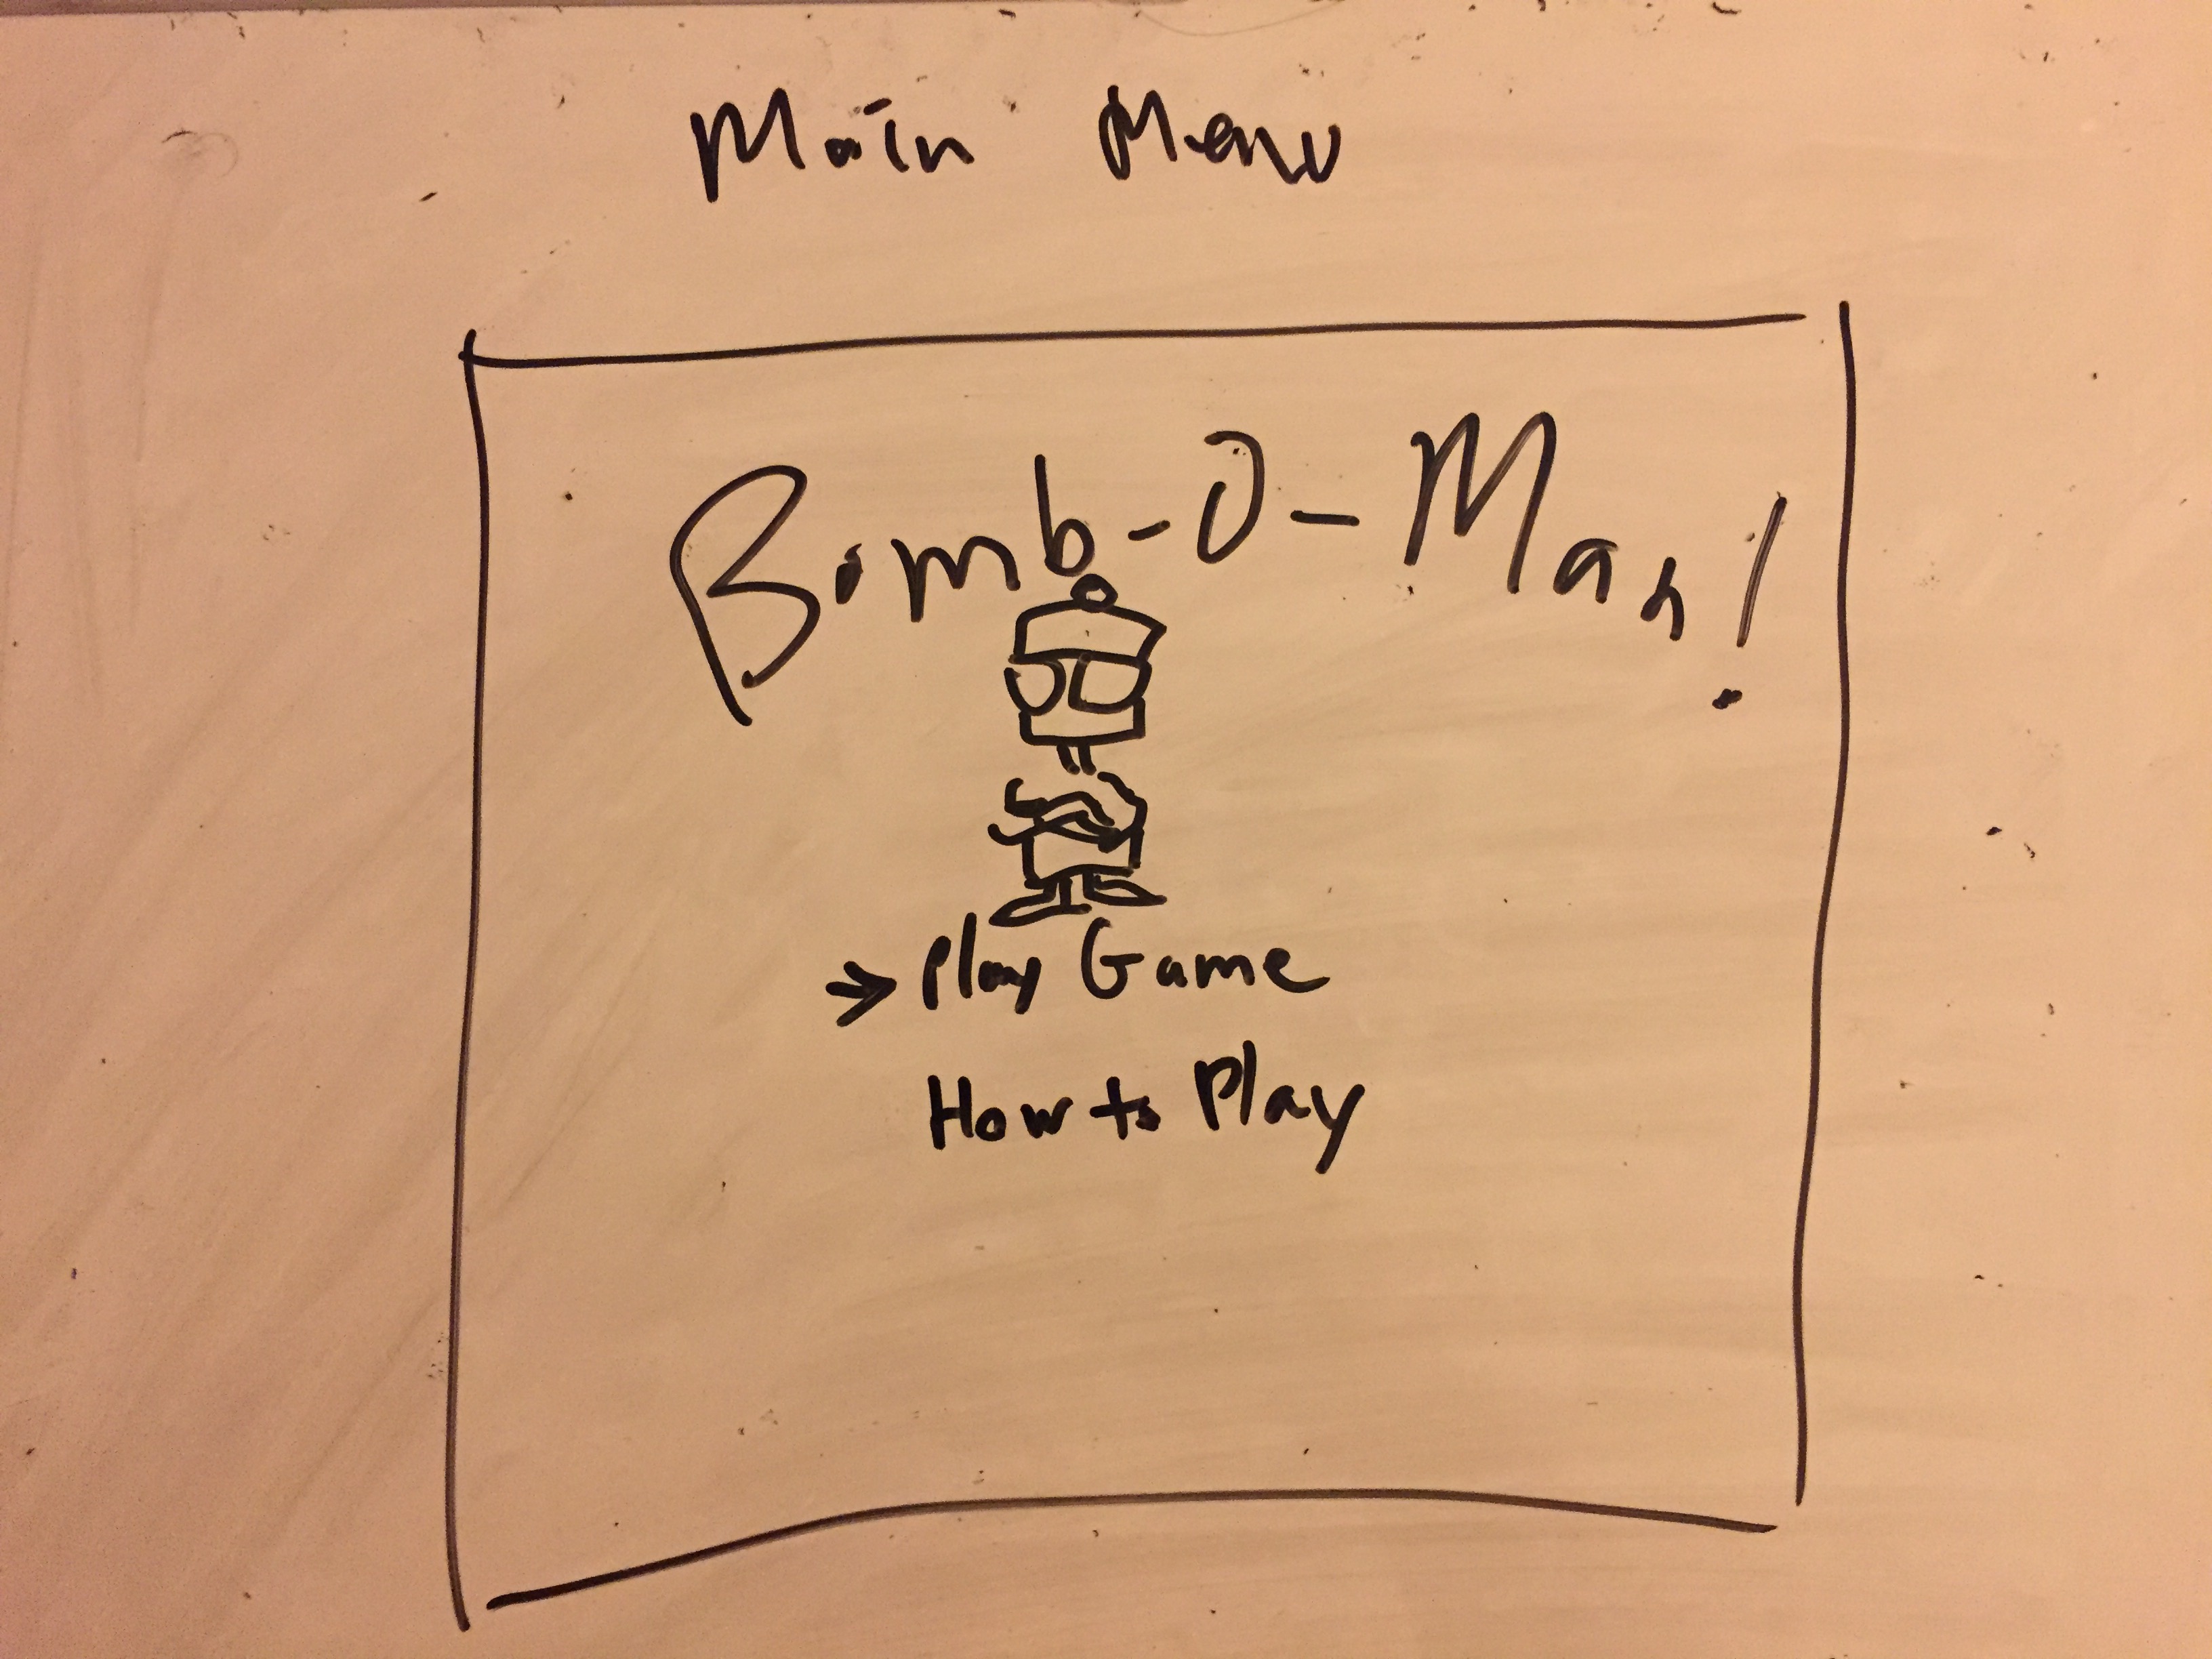 Main Menu
Bomb-O-Man!
→ Play Game
How to Play